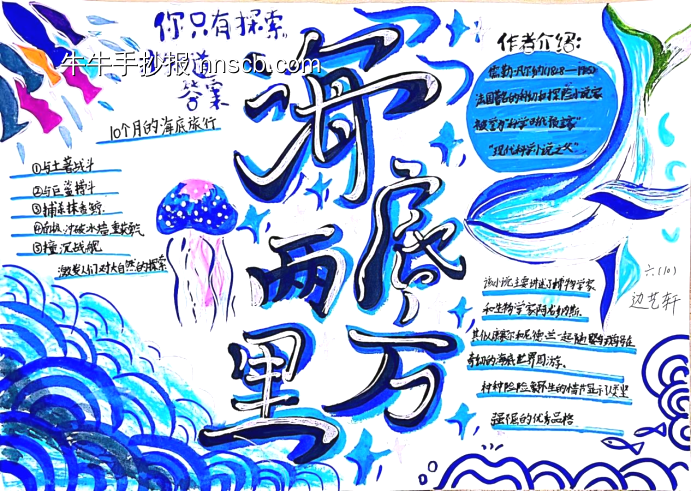 你只有探索
才知道
答案
牛牛手抄报mnscb.com
10个月的海底旅行
①与土著战斗
②与巨鲨搏斗
③捕杀抹香鲸
④南极冲破冰墙
⑤撞沉战舰
激发人们对大自然的探索
海底两万里
作者介绍:
儒勒·凡尔纳(1828—1905)
法国著名的科幻和探险小说家
被誉为"科学时代预言家"
"现代科学小说之父"
该小说主要讲述了博物学家
和生物学家阿龙纳斯.
其仆人康塞尔和尼德·兰一起随
奇幻的海底世界周游.
种种险象环生的情节
强、的优秀品格
六(10)
边艺轩